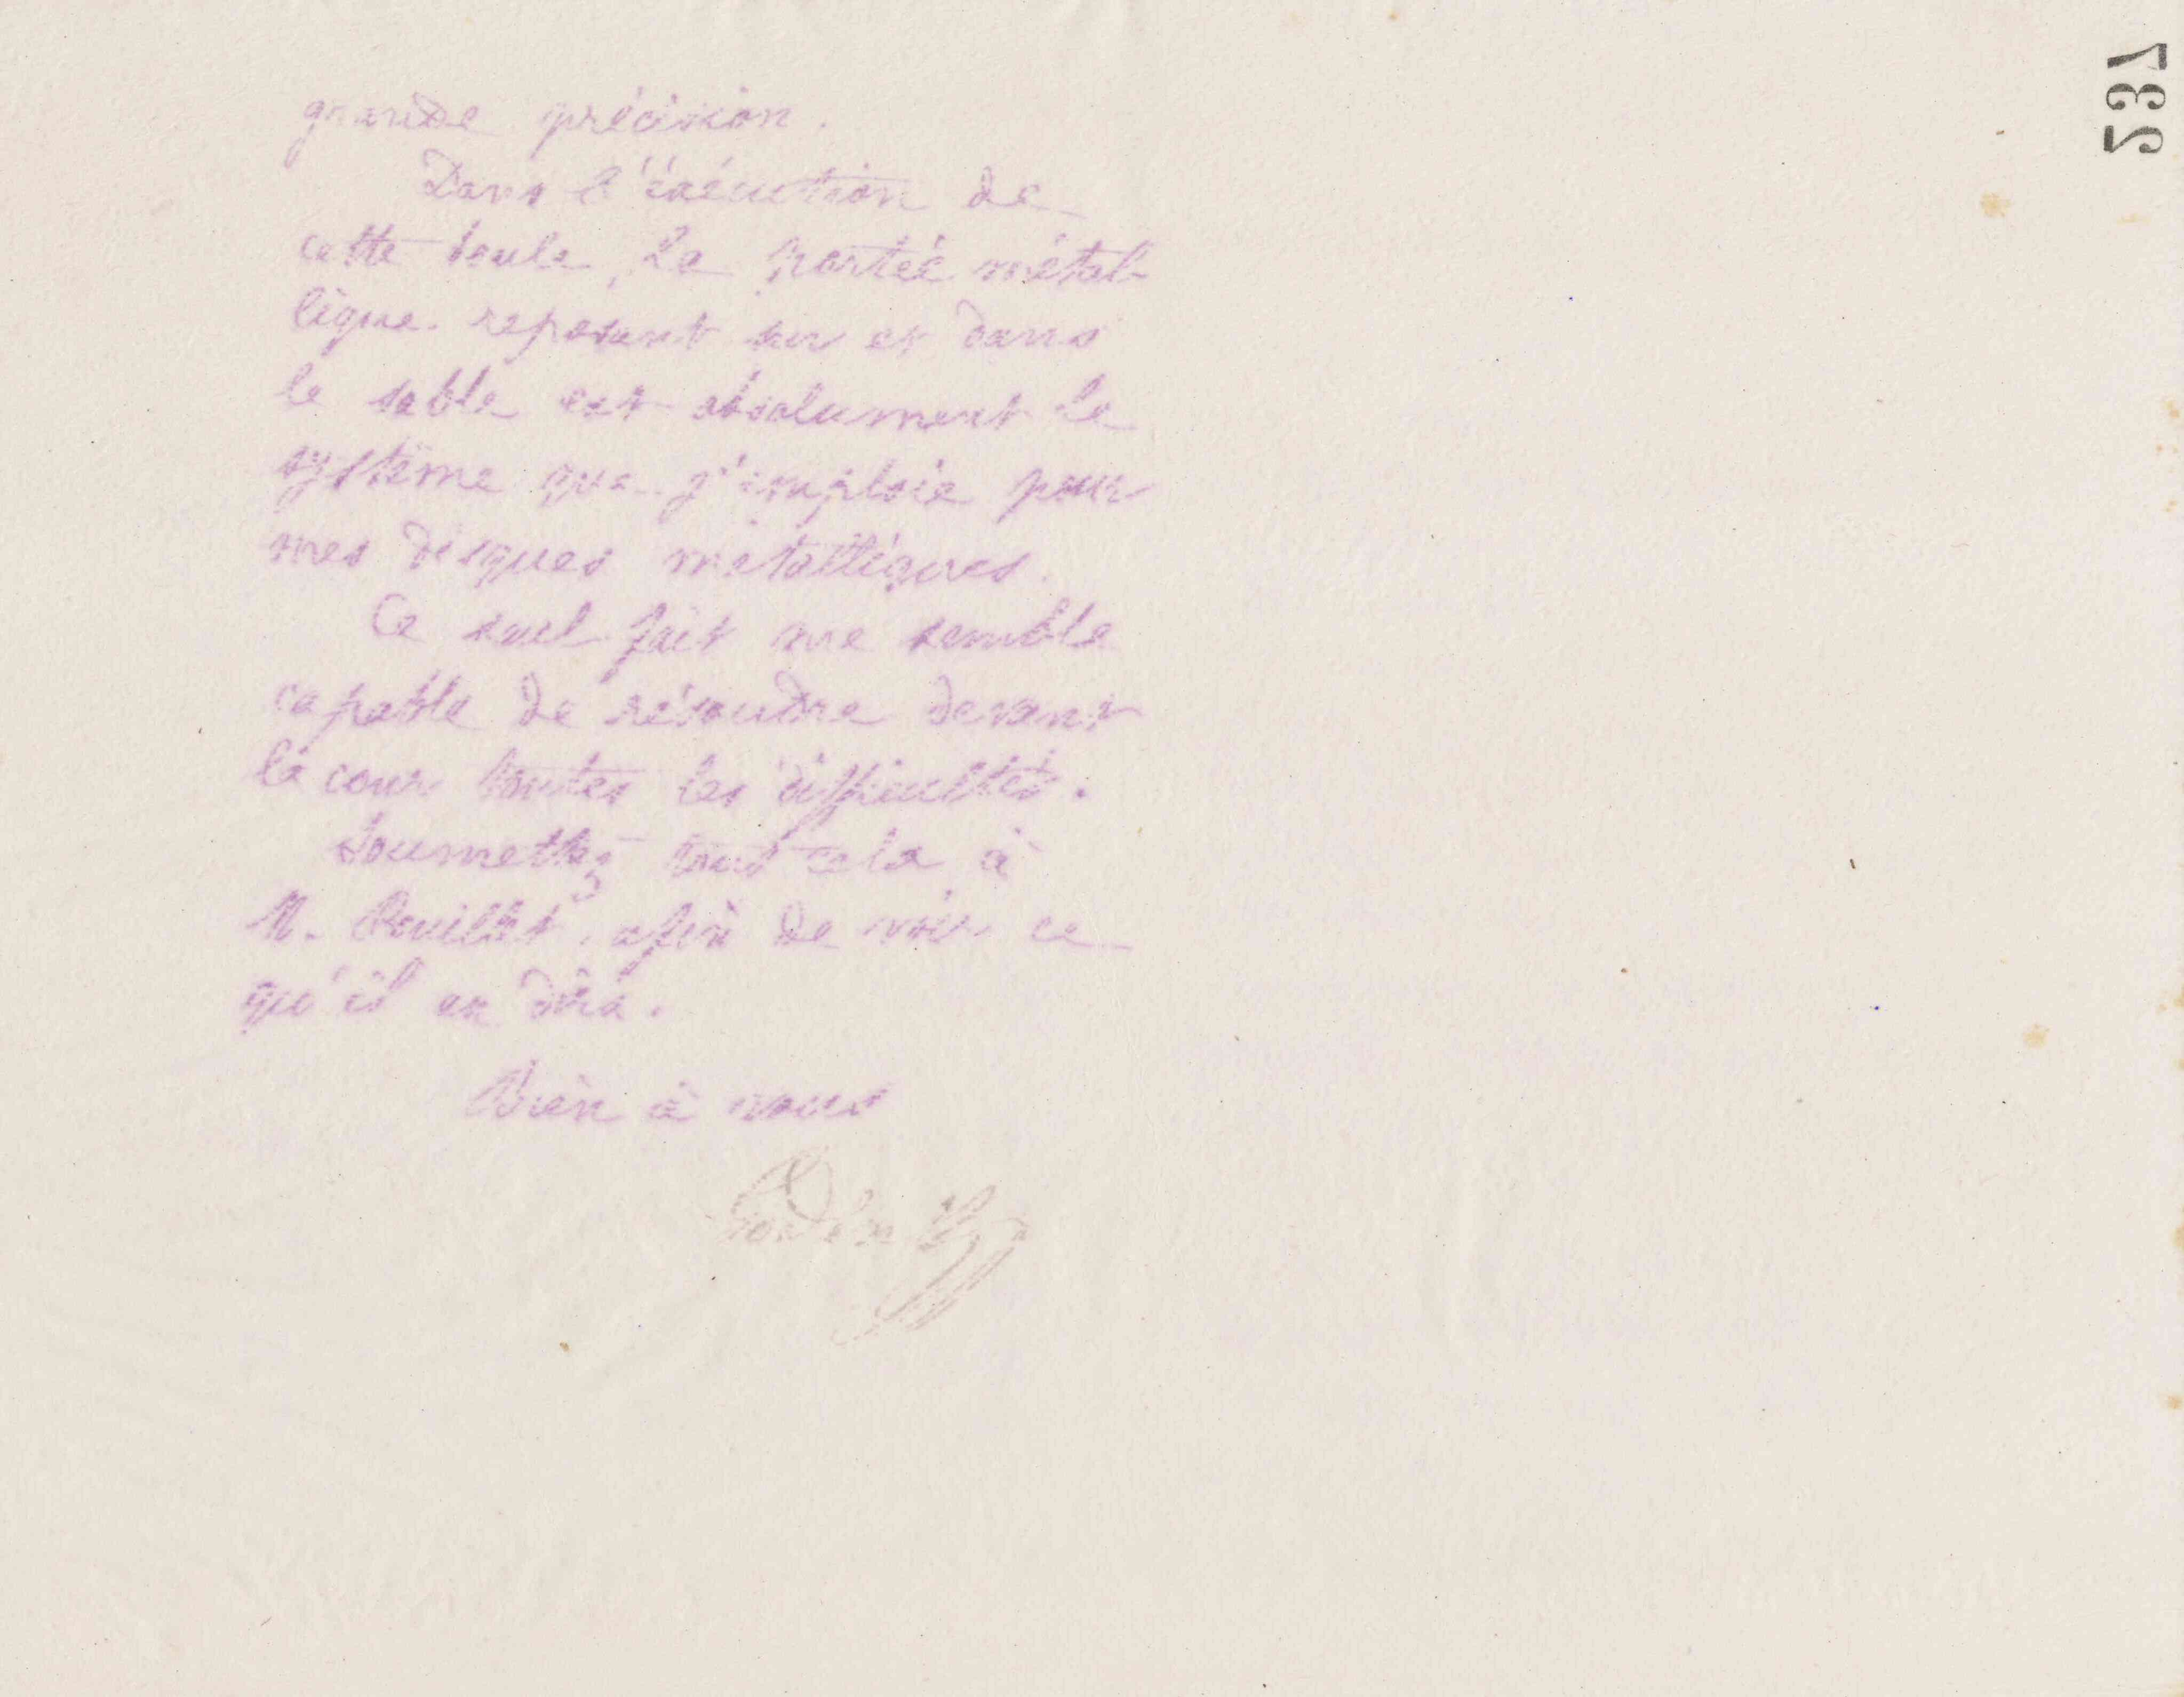 grande précision.
Dans l'exécution de
cette boule, la portée métal-
lique reposant sur et dans
le sable est absolument le
système que j'emploie pour
mes disques métalliques.
Ce seul fait me semble
capable de résoudre devant
la cour toutes les difficultés.
Soumettez tout cela à
M. Pouillet, afin de voir ce
qu'il en dira.
Bien à vous
Godin
237